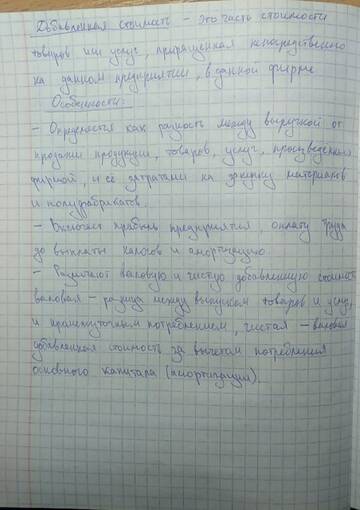 Добавленная стоимость - это часть стоимости
товаров или услуг, приращенная непосредственно
на данном предприятии, в данной фирме
Особенности:
- Определяется как разность между выручкой от
продажи продукции, товаров, услуг, произведенных
фирмой, и её затратами на закупку материалов
и полуфабрикатов.
- Включает прибыль предприятия, оплату труда
до выплаты налогов и амортизацию.
- Различают валовую и чистую добавленную стоимость
валовая - разница между выпуском товаров и услуг
и промежуточным потреблением, чистая - валовая
добавленная стоимость за вычетом потребления
основного капитала (амортизации).